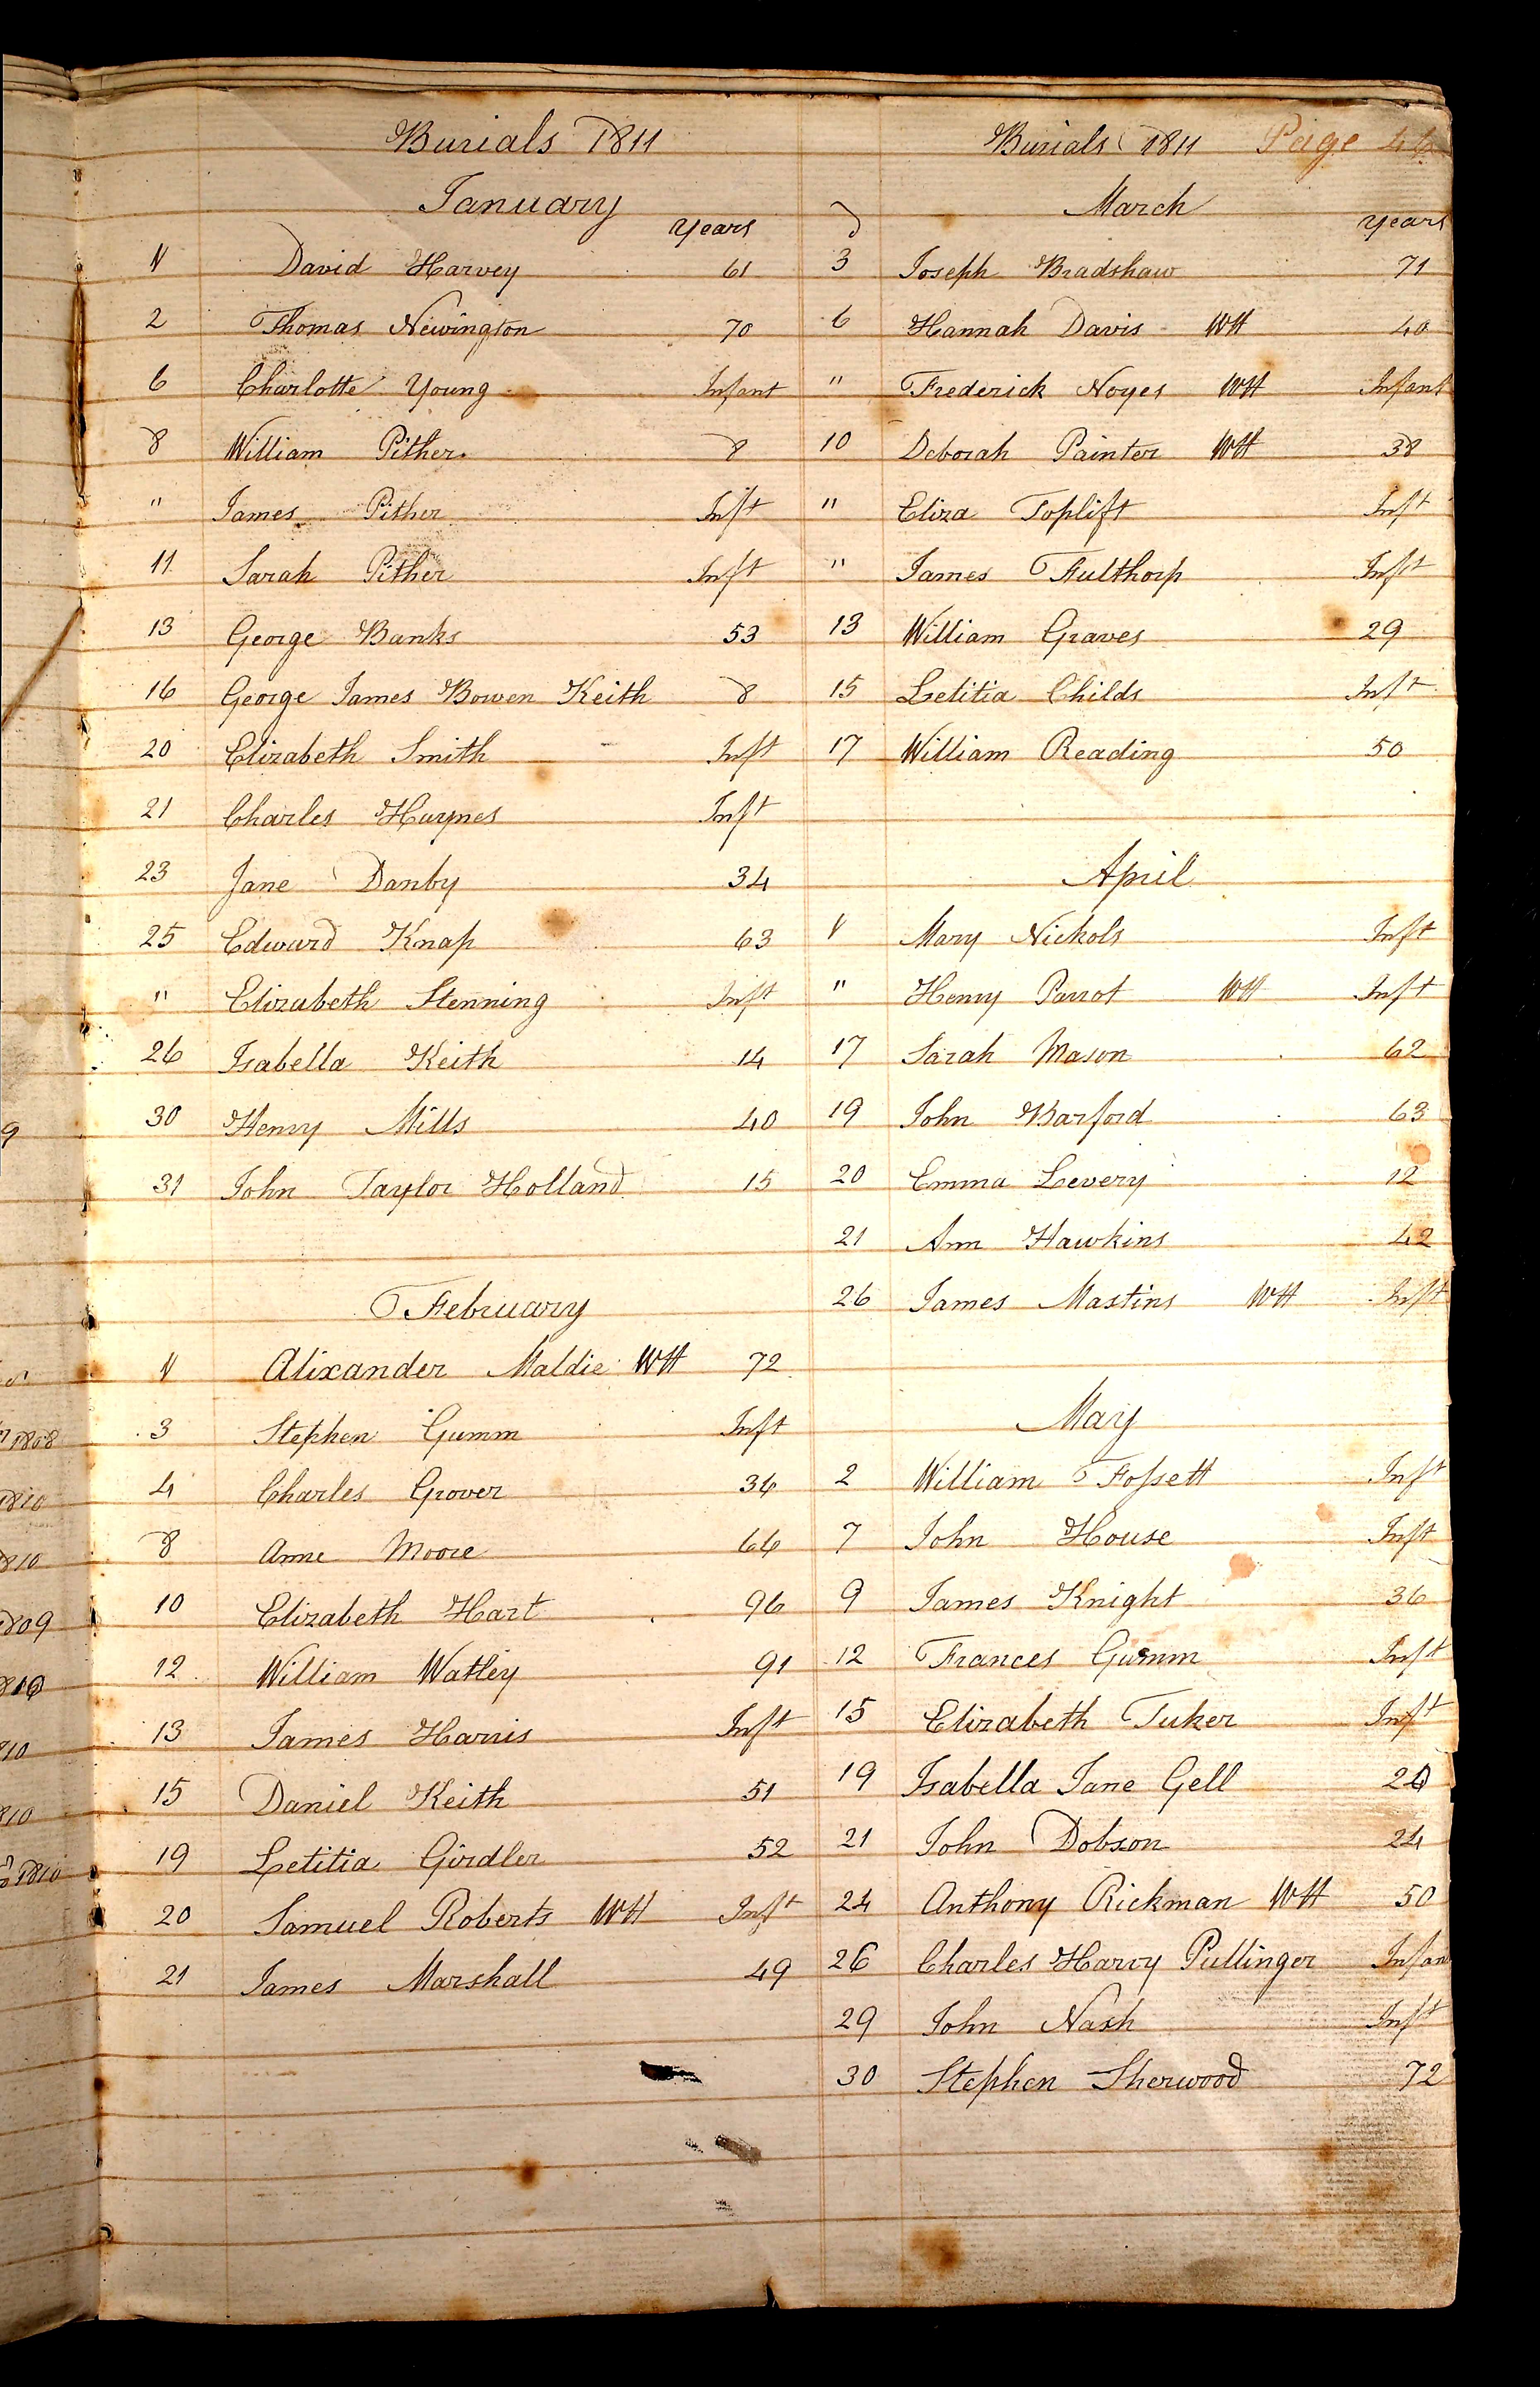 Burials 1811
January
years
1 David Harvey 61
2 Thomas Newington 70
6 Charlotte Young Infant
8 William Pither 8
" James Pither Inft
11 Sarah Pither Inft
13 George Banks 53
16 George James Bowen Keith 8
20 Elizabeth Smith Inft
21 Charles Haynes Inft
23 Jane Danby 34
25 Edward Knap 63
" Elizabeth Stenning Inft
26 Isabella Keith 14
30 Henry Mills 40
31 John Taylor Holland 15
February
1 Alixander Maldie WH 72
3 Stephen Gumm Inft
4 Charles Grover 36
8 Anne Moore 66
10 Elizabeth Hart 96
12 William Watley 91
13 James Harris Inft
15 Daniel Keith 51
19 Letitia Girdler 52
20 Samuel Roberts WH Inft
21 James Marshall 49
Burials 1811 Page
March
D years
3 Joseph Bradshaw 71
6 Hannah Davis WH 40
" Frederick Noyes WH Infant
10 Deborah Painter WH 38
" Eliza Toplift Inft
" James Fulthorp Inft
13 William Graves 29
15 Letitia Childs Inft
17 William Reading 50
April
1 Mary Nickols Inft
" Henry Parrot WH Inft
17 Sarah Mason 62
19 John Barford 63
20 Emma Levery 12
21 Ann Hawkins 42
26 James Mastins WH Inft
May
2 William Fossett Inft
7 John House Inft
9 James Knight 36
12 Frances Gumm Inft
15 Elizabeth Tuker Inft
19 Isabella Jane Gell
21 John Dobson 24
24 Anthony Rickman WH 50
26 Charles Harvy Pullinger Infan
29 John Nash Inft
30 Stephen Sherwood 72
9
1808
1810
810
1809
810
810
1810